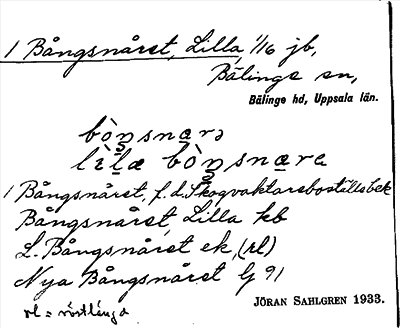 1 Bångsnåret, Lilla, 1/16 jb,
Bälinge sn,
Bälinge hd, Uppsala län.
bòŋsnarə
lìl̥æ bòŋsnarɐ
1 Bångsnåret, f.d. Skogvaktareboställe bek
Bångsnåret, Lilla kb
L. Bångsnåret ek, (rl)
Nya Bångsnåret Lg 91
JÖRAN SAHLGREN 1933.
rl =